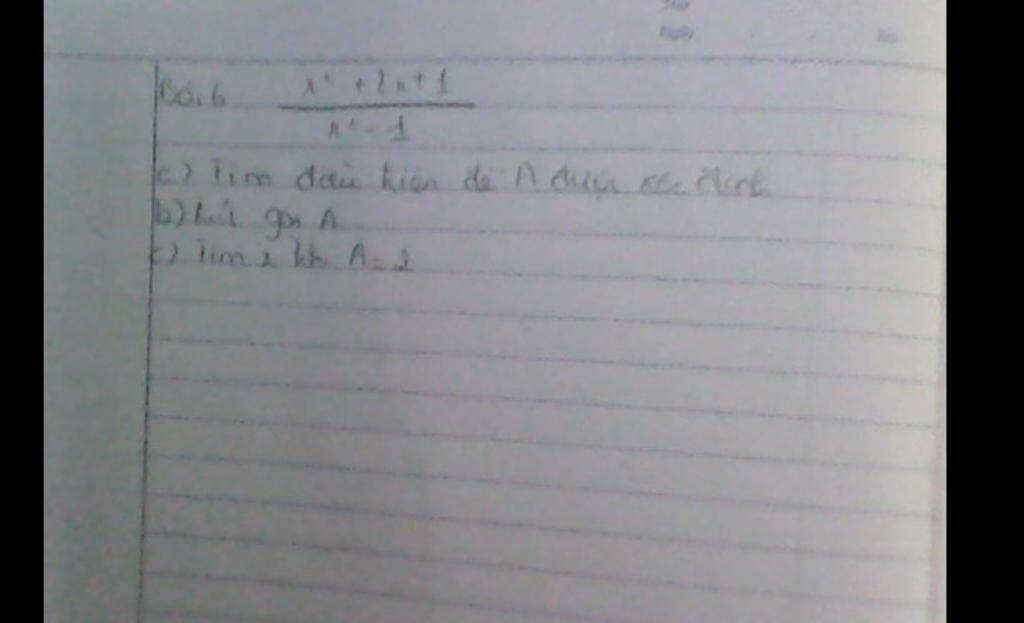 Bài 6 x² + 2x + 1
x² - 1
a) Tìm điều kiện để A được xác định
b) Rút gọn A
c) Tìm x khi A = 2